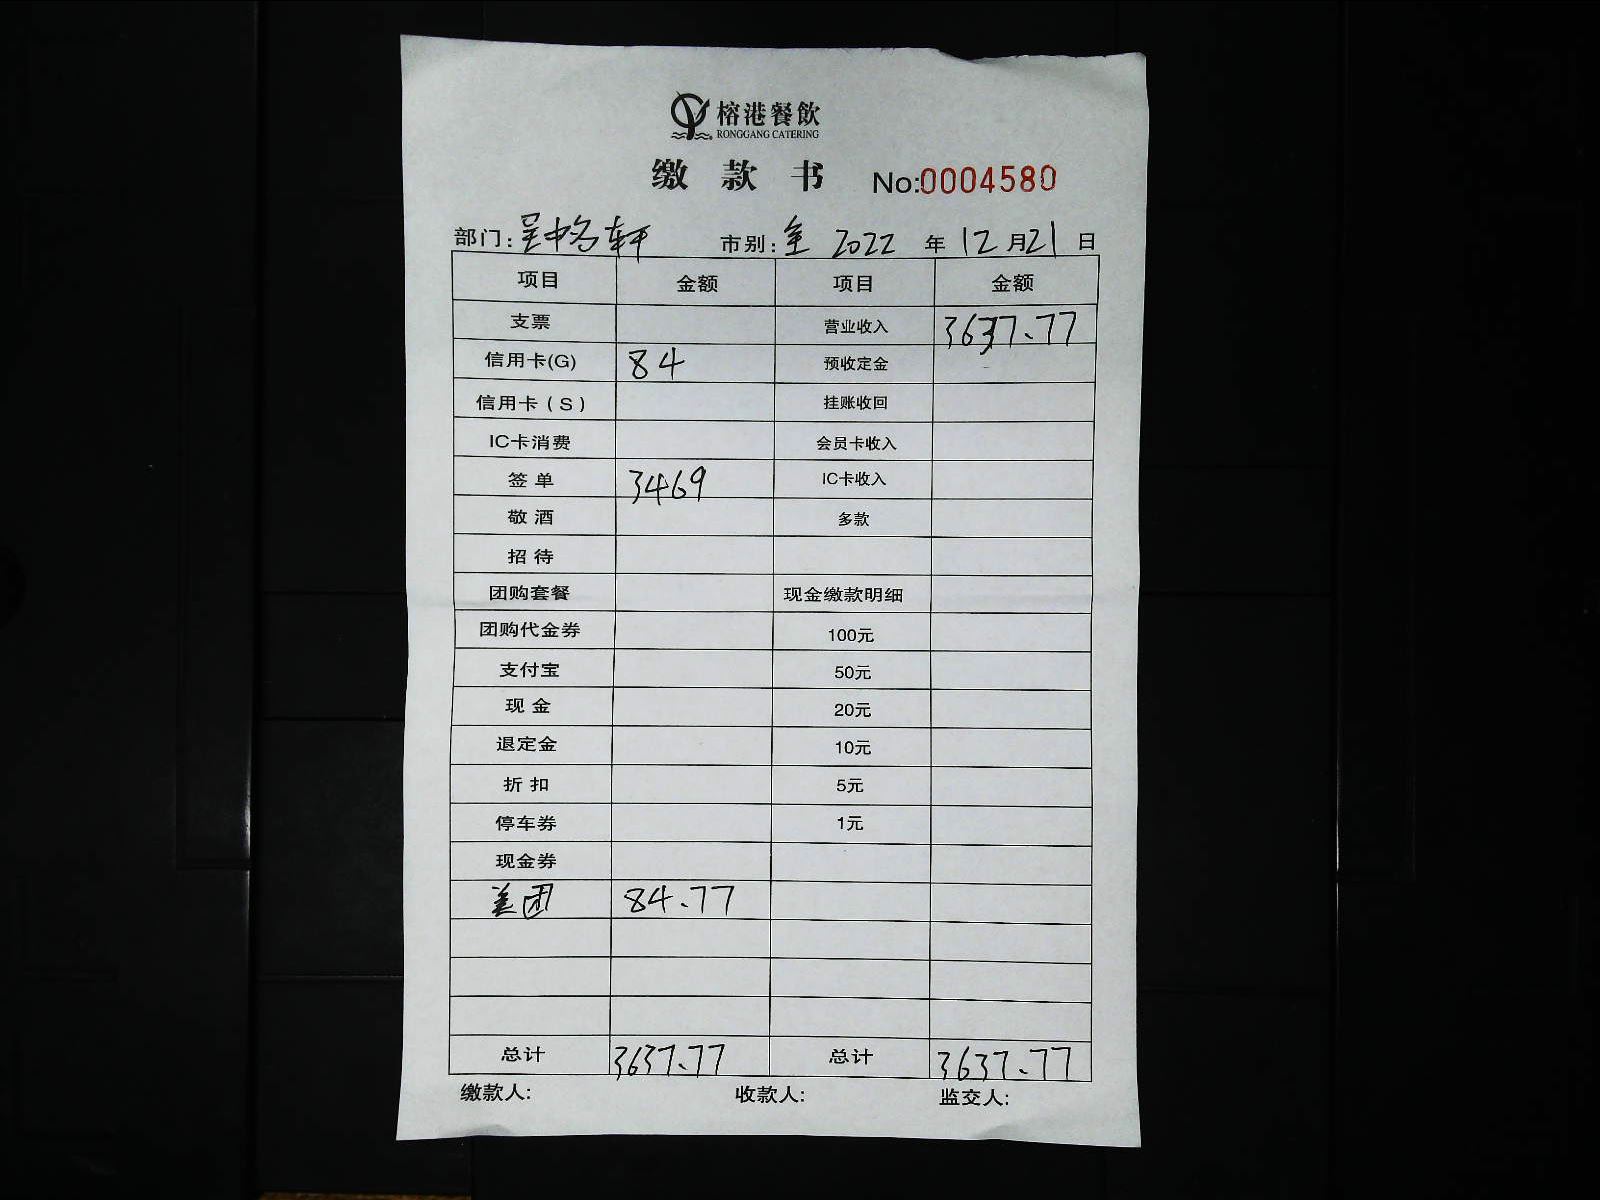 榕港餐飲
RONGGANG CATERING
缴款书 No:0004580
部门:吴中名轩 市别:全 2022 年 12 月 21 日
项目 金额 项目 金额
支票 营业收入 3637.77
信用卡(G) 84 预收定金
信用卡(S) 挂账收回
IC卡消费 会员卡收入
签单 3469 IC卡收入
敬酒 多款
招待
团购套餐 现金缴款明细
团购代金券 100元
支付宝 50元
现金 20元
退定金 10元
折扣 5元
停车券 1元
现金券
美团 84.77
总计 3637.77 总计 3637.77
缴款人: 收款人: 监交人: